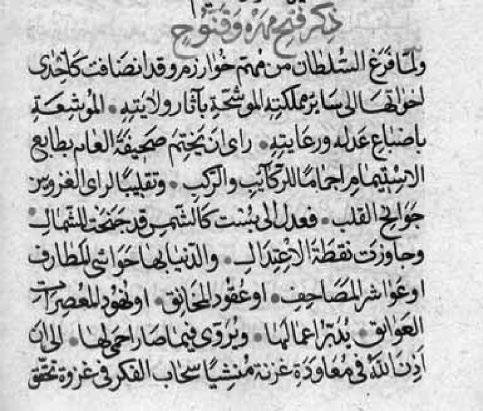 ذكر فتح مهره وقنوج
ولما فرغ السلطان من مهم خوارزم وقد انضافت كاحدى
اخواتها الى سائر مملكته الموشحة بآثار ولايته الموشعة
باصباغ عدله ورعايته راى ان يختم صحيفة العام بطابع
الاستجمام اجماما للركائب والركب وتقليبا لراى الغزو بين
جوانح القلب فعدل الى بست كالشمس قد جنحت للشمال
وجاوزت نقطة الاعتدال والدنيا بها حواشى المطارف
او عواشر المصاحف او عقود المخانق او نهود المعصرات
العواتق يدبر اعمالها ويروى فيما صار احمى لها الى ان
اذن الله فى معاودة غزنة منشيا سحاب الفكر فى غزوة تحقق